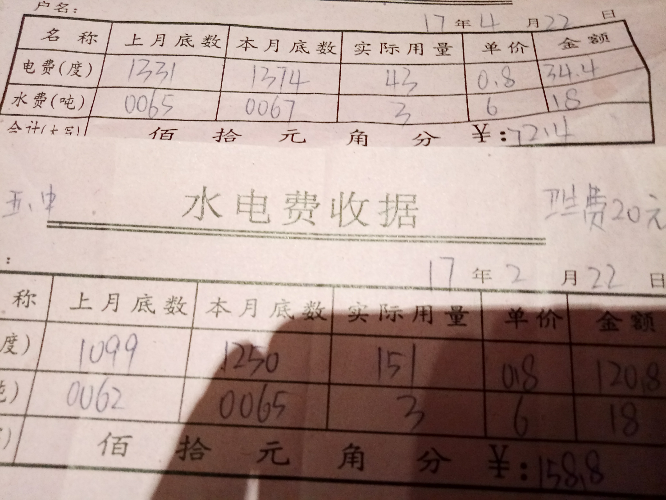 户名:
17 年 4 月 22 日
名 称 上月底数 本月底数 实际用量 单价 金额
电费(度) 1331 1374 43 0.8 34.4
水费(吨) 0065 0067 3 6 18
合计(大写) 佰 拾 元 角 分 ¥:72.4
水电费收据 卫生费20元
:
17 年 2 月 22 日
称 上月底数 本月底数 实际用量 单价 金额
度) 1099 1250 151 0.8 120.8
吨) 0062 0065 3 6 18
佰 拾 元 角 分 ¥:158.8